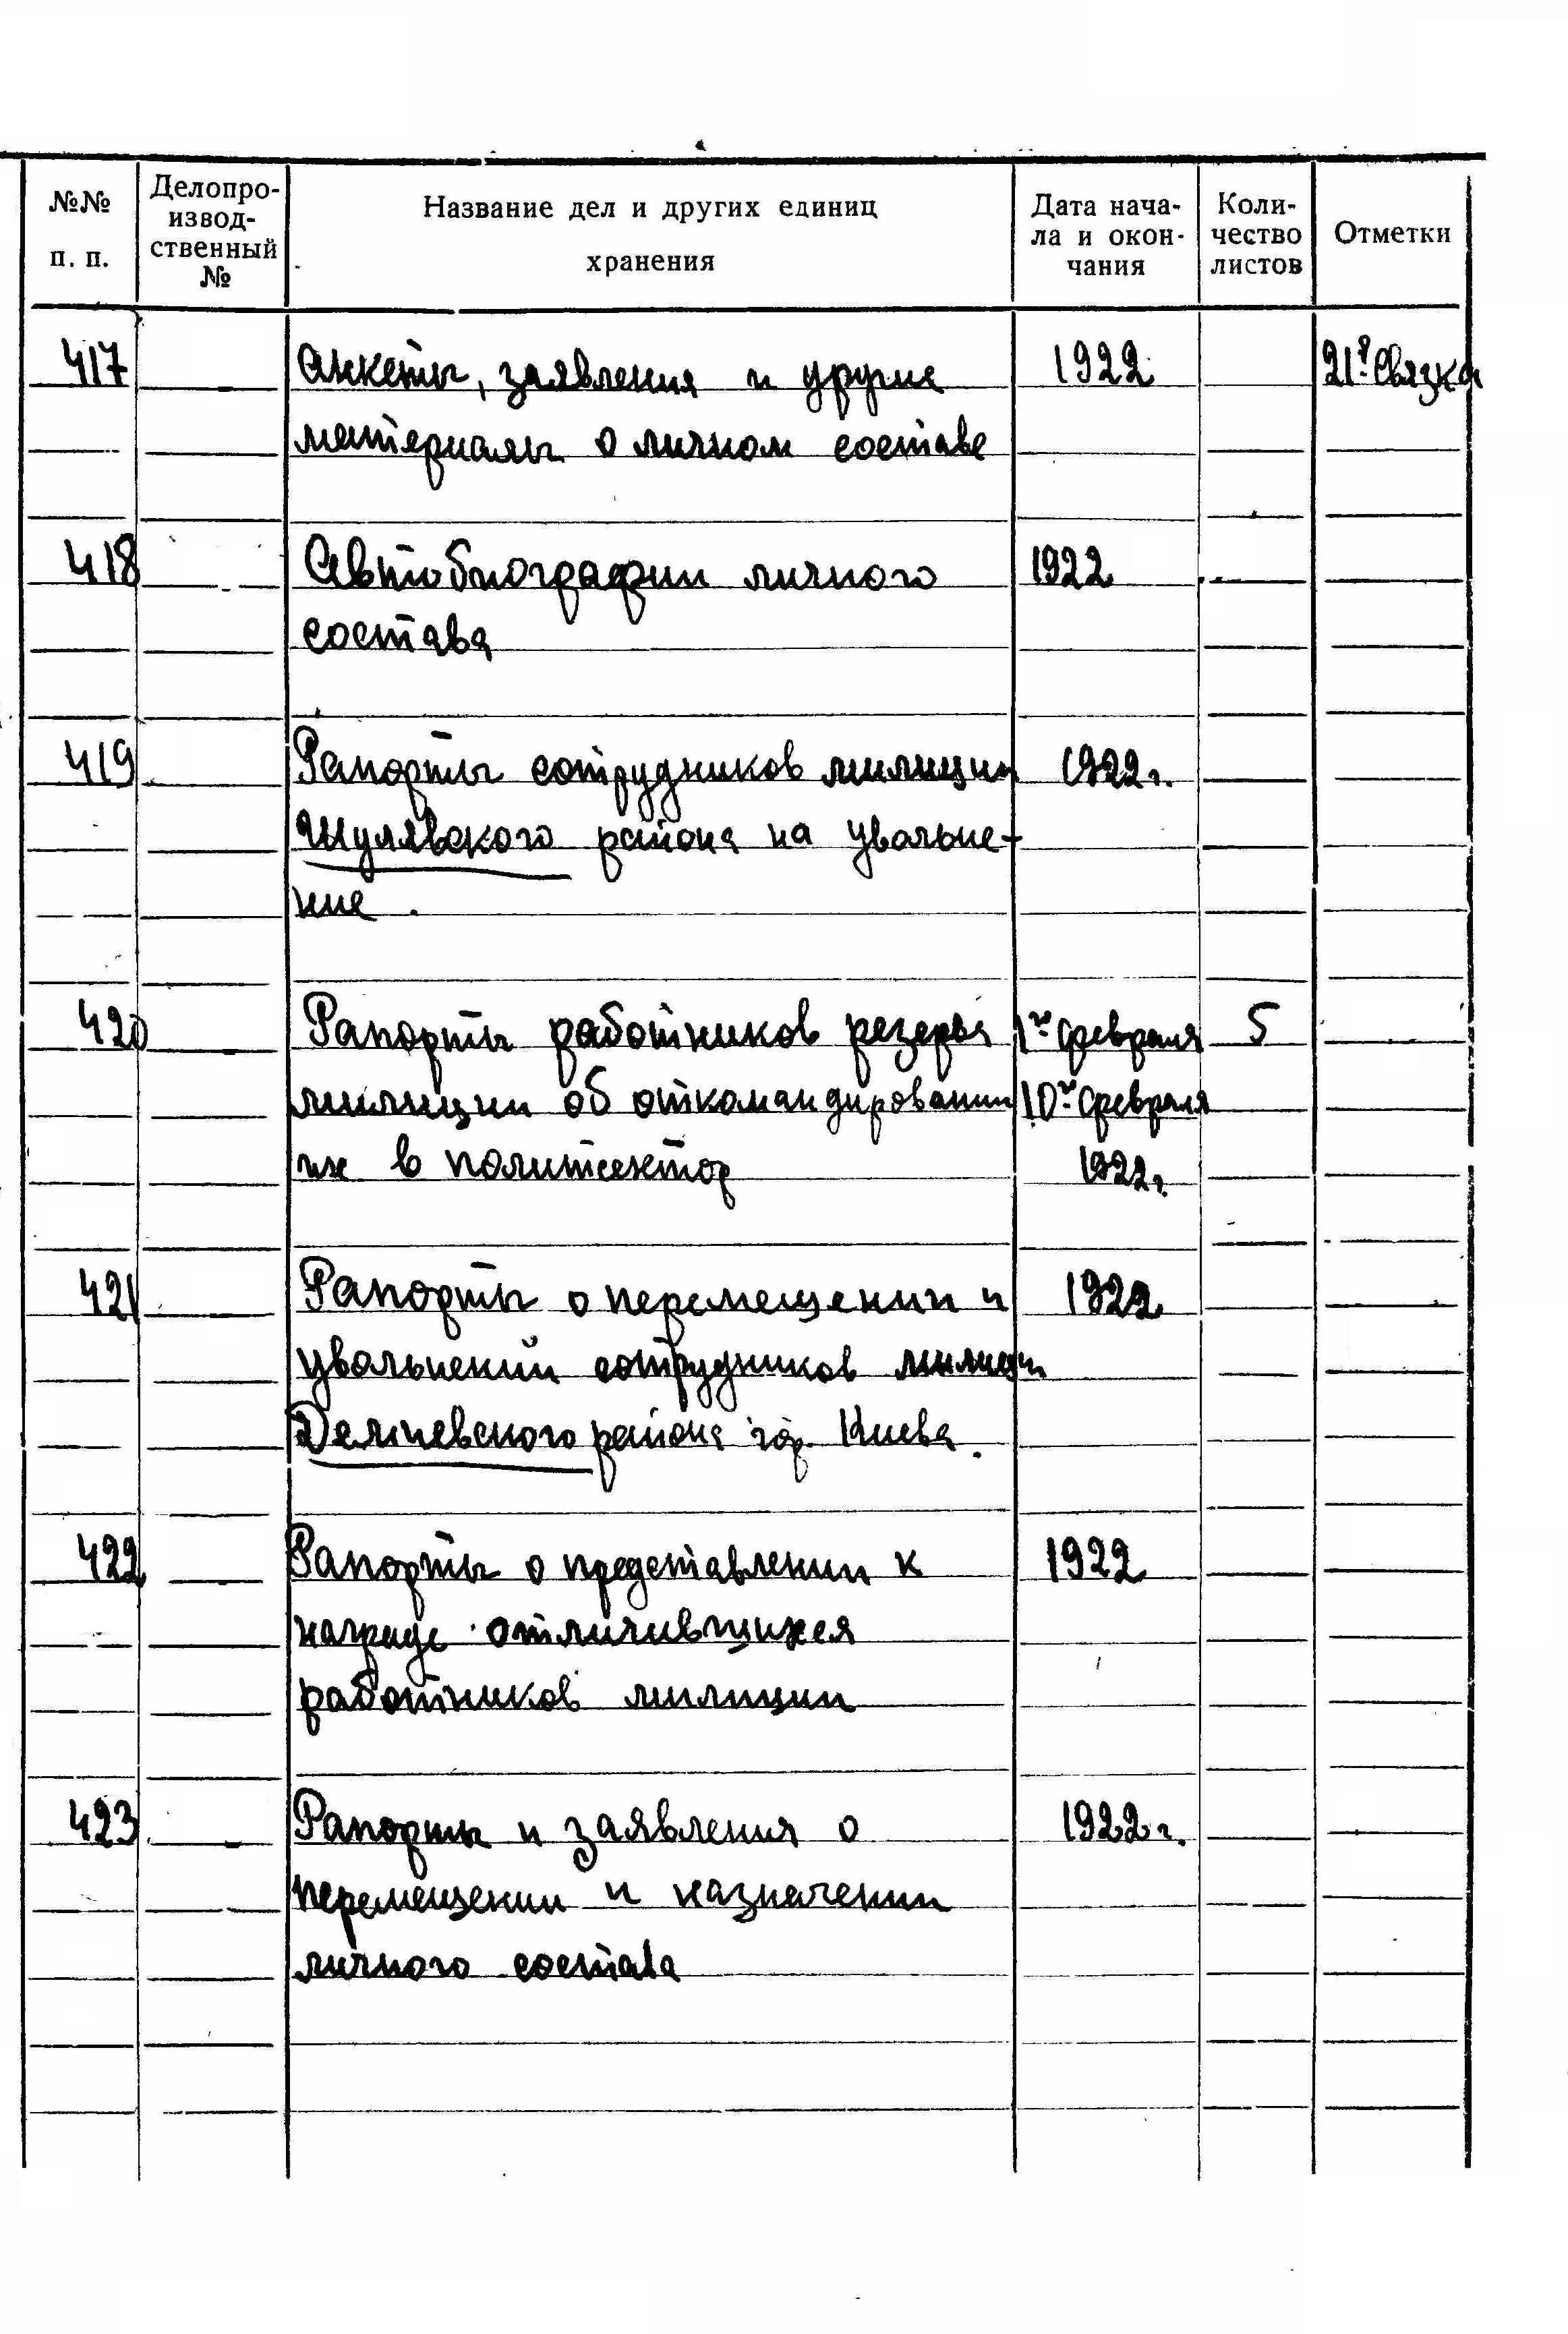 №№ п. п.
Делопро-
извод-
ственный
№
Название дел и других единиц
хранения
Дата нача-
ла и окон-
чания
Коли-
чество
листов
Отметки
417 Анкеты, заявления и другие 1922 21я Связка
материалы о личном составе
418 Автобиографии личного 1922
состава
419 Рапорты сотрудников милиции 1922 г.
Шулявского района на увольне-
ние.
420 Рапорты работников резерва 1го февраля 5
милиции об откомандировании 10го февраля
их в политсектор 1922 г.
421 Рапорты о перемещении и 1922
увольнений сотрудников милиции
Демиевского района гор. Киева.
422 Рапорты о представлении к 1922
награде отличившихся
работников милиции
423 Рапорты и заявления о 1922 г.
перемещении и назначении
личного состава